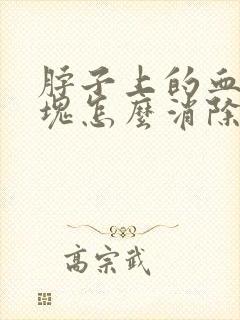 脖子上的血
塊怎麼消除
高宗武